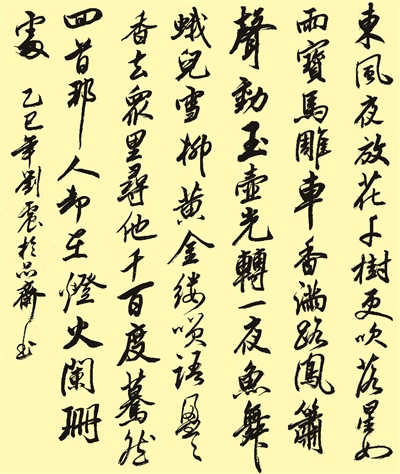 東風夜放花千樹更吹落星如
雨寶馬雕車香滿路鳳簫
聲動玉壺光轉一夜魚舞
蛾兒雪柳黃金縷笑語盈々
香去眾里尋他千百度驀然
回首那人却在燈火闌珊
處 乙巳年劉震於齋